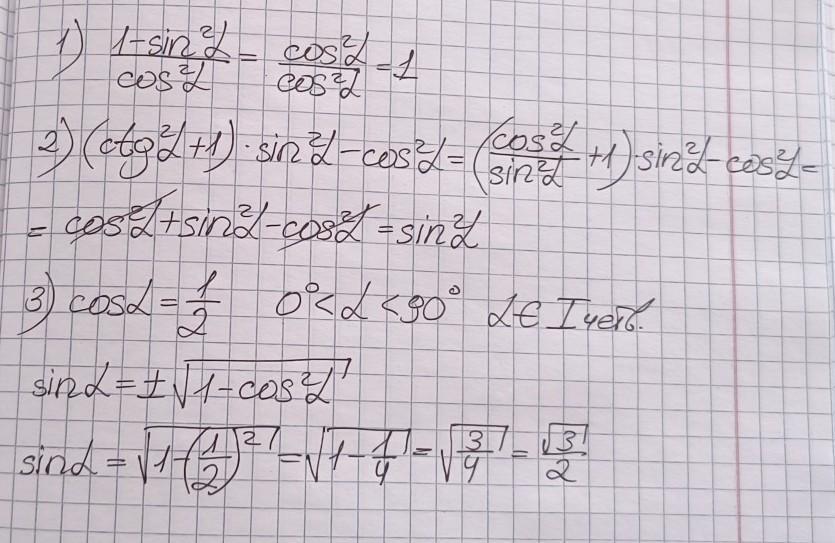 1) (1-sin²α)/(cos²α) = (cos²α)/(cos²α) = 1
2) (ctg²α+1)·sin²α-cos²α = ((cos²α)/(sin²α)+1)·sin²α-cos²α=
= cos²α+sin²α-cos²α = sin²α
3) cosα = 1/2 0°<α<90° α∈I четв.
sinα = ±√(1-cos²α)
sinα = √(1-(1/2)²) = √(1-1/4) = √(3/4) = √3/2